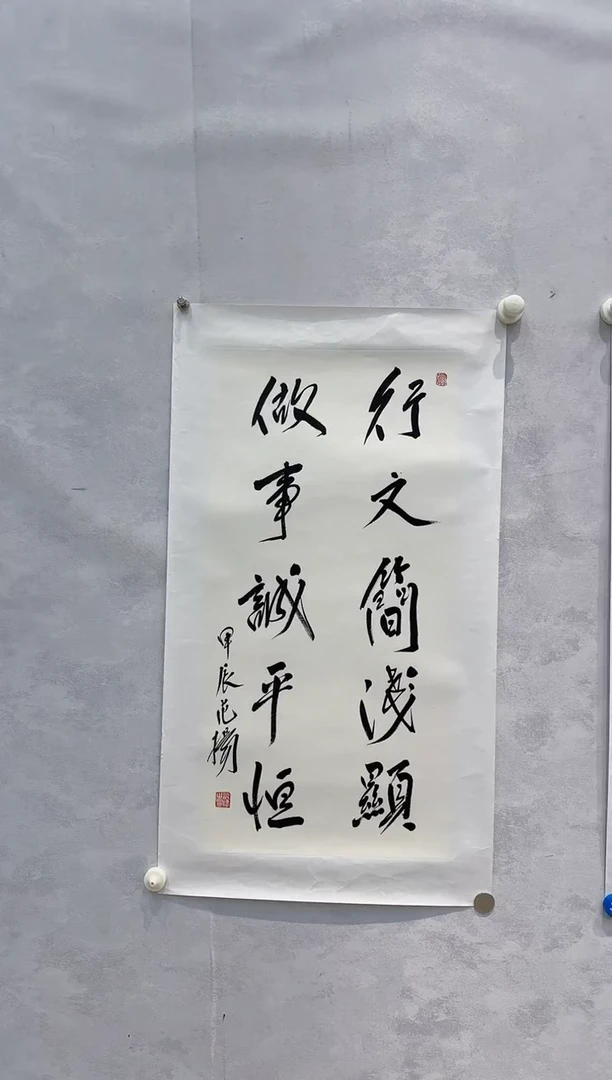 行文簡淺顯
做事誠平恒
甲辰范揚